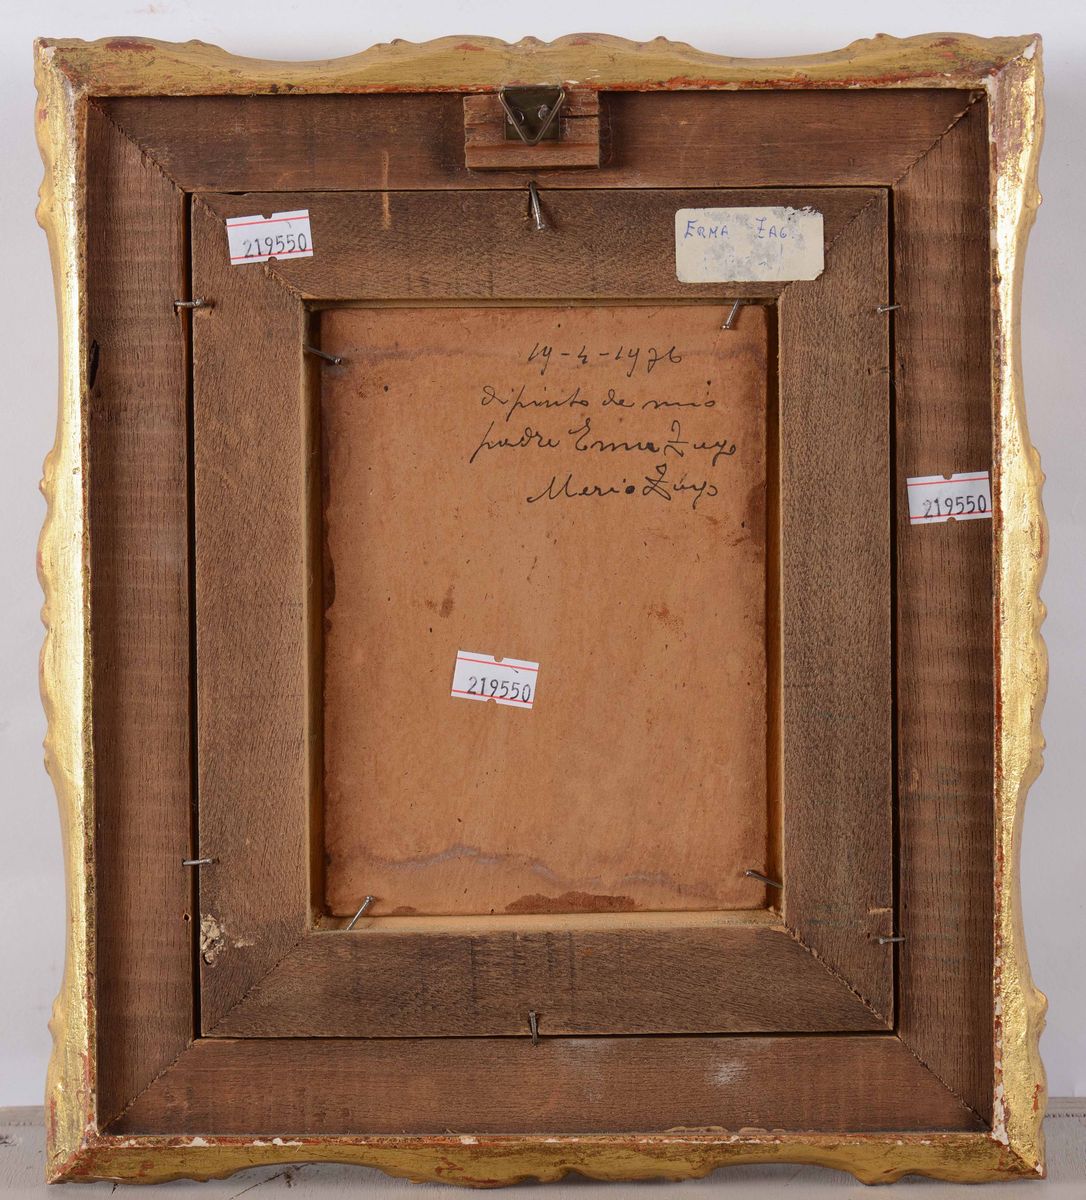 219550
ERMA ZAG
19-4-1976
dipinto da mio
padre Erma Zago
Mario Zago
219550
219550